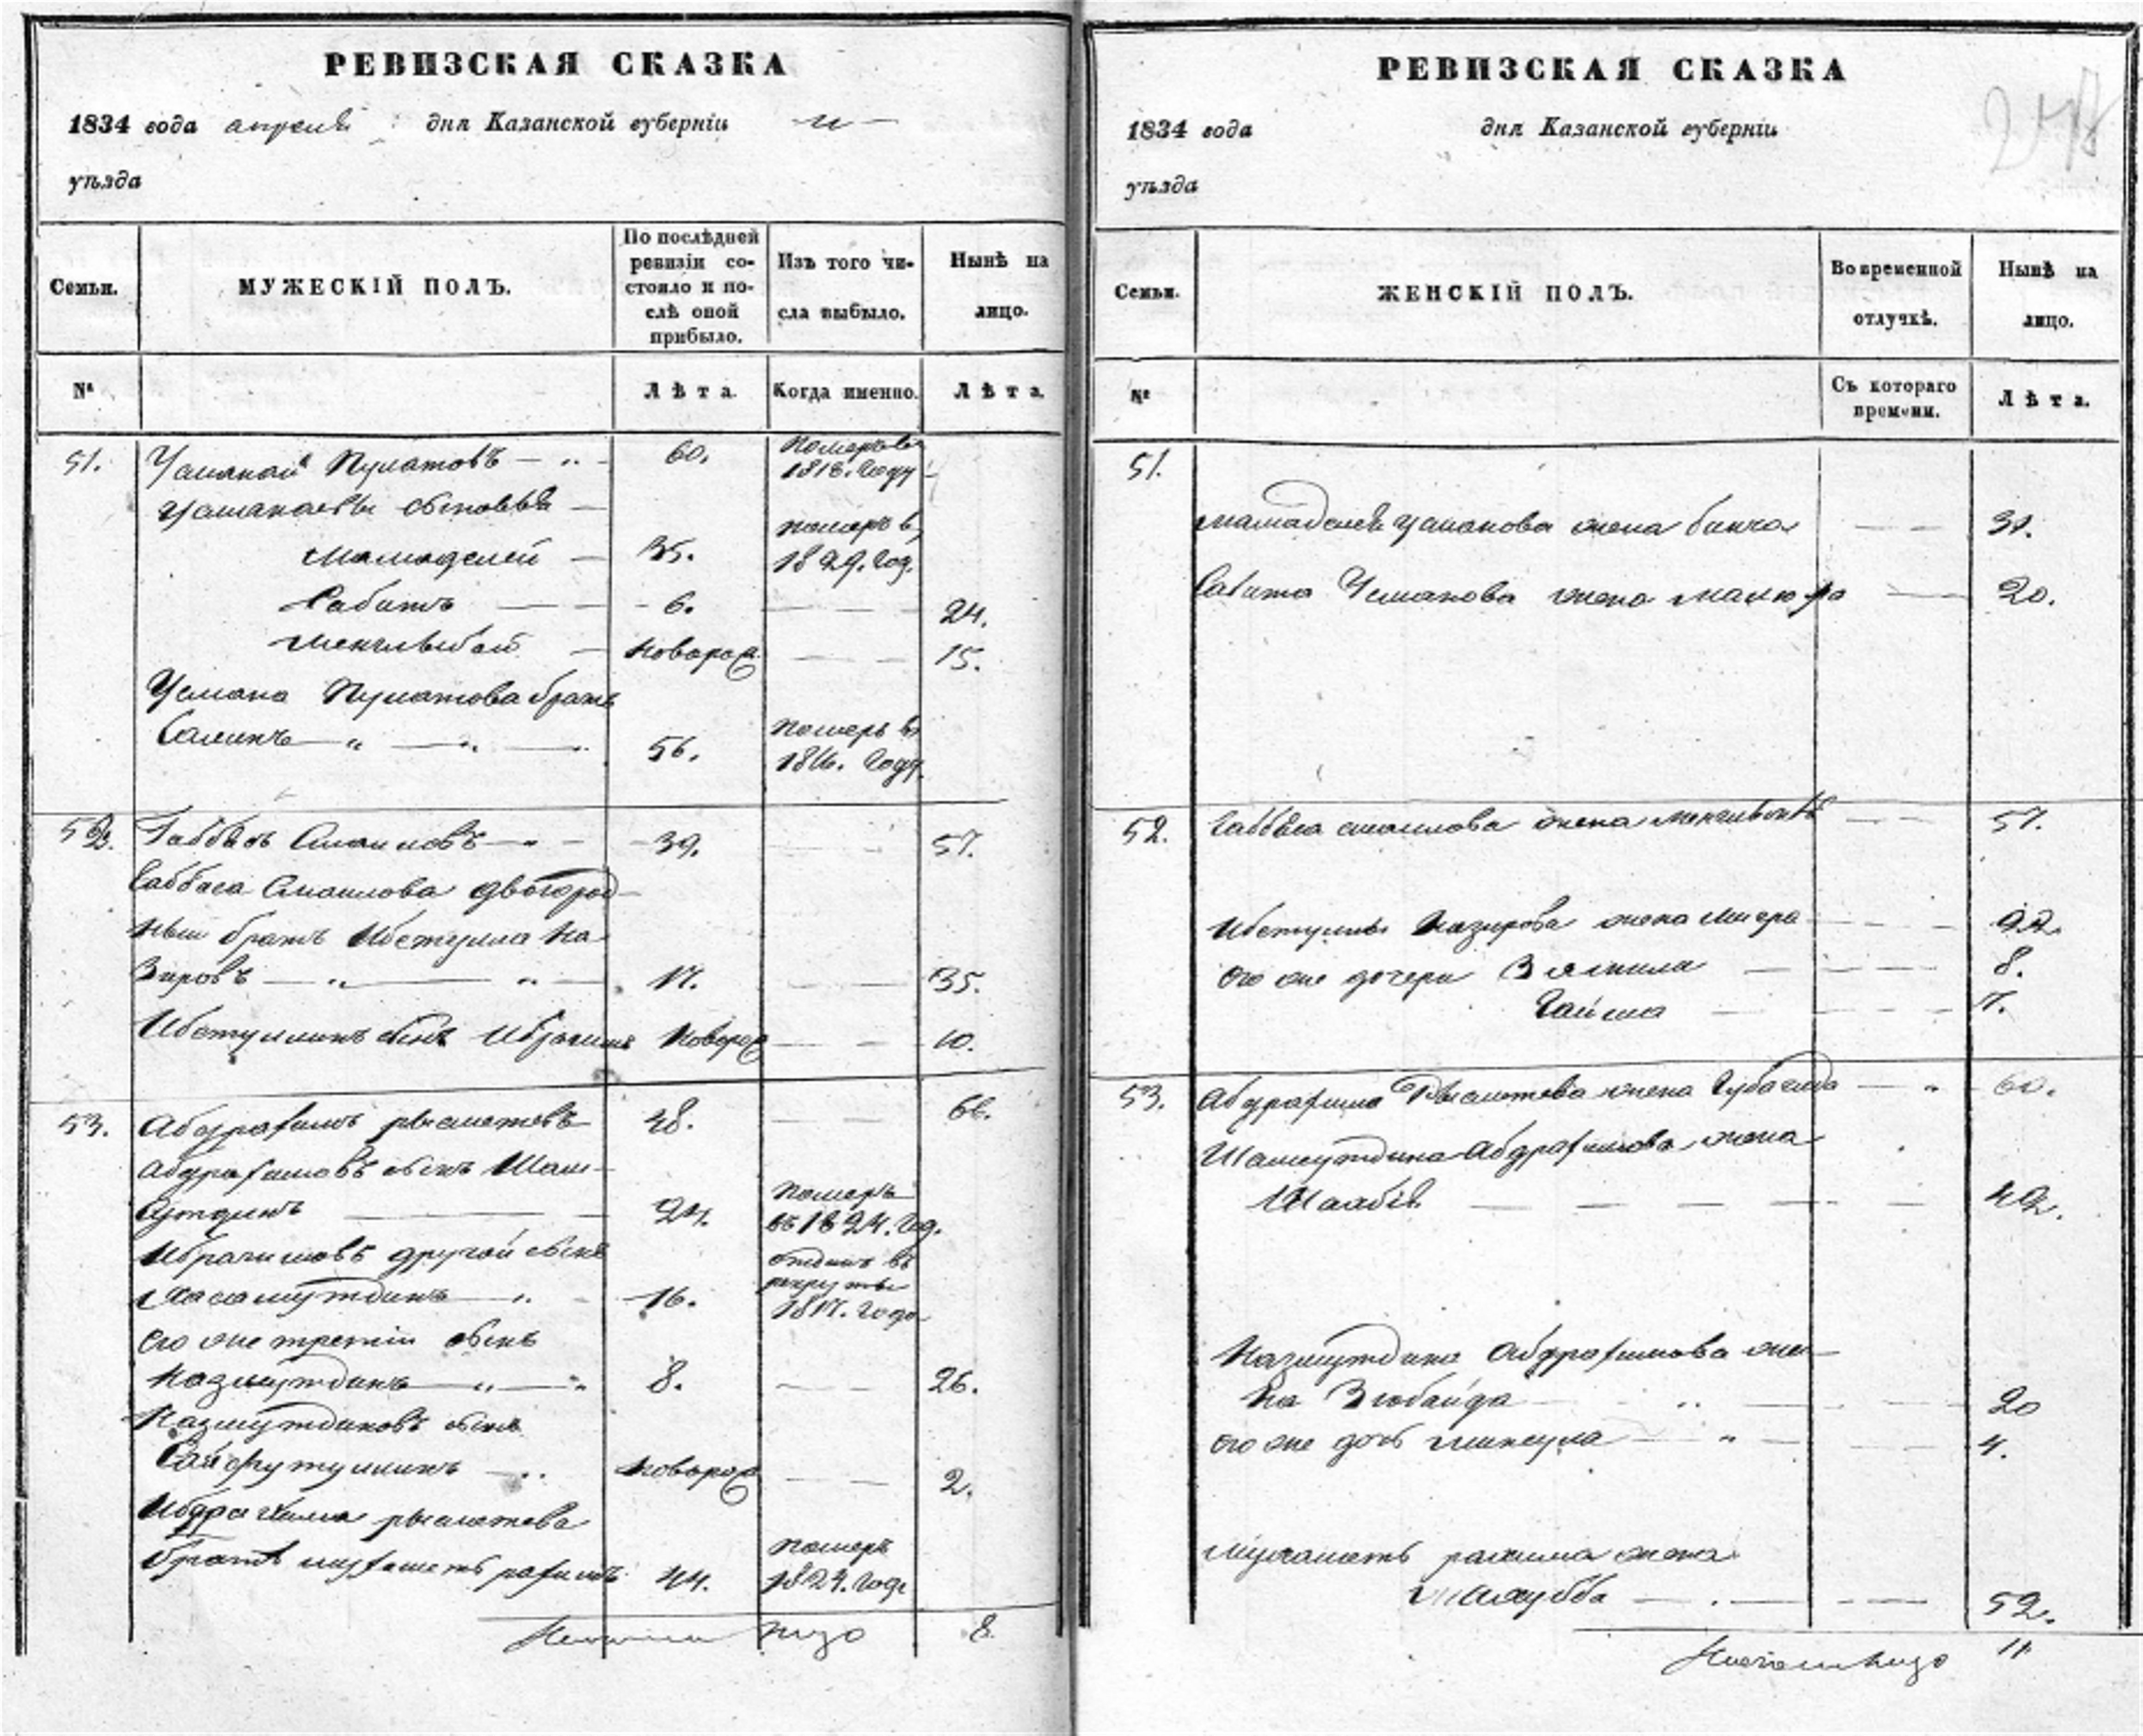 РЕВИЗСКАЯ СКАЗКА
1834 года апреля дня Казанской губерніи
уѣзда
Семьи.
МУЖЕСКІЙ ПОЛЪ.
По послѣдней ревизіи состояло и послѣ оной прибыло.
Изъ того числа выбыло.
Нынѣ на лицо.
№
Лѣта.
Когда именно.
Лѣта.
51. Усманай Пулатовъ 60. померъ въ
1818. году
Усманаевы сыновья
Мамаделей 35. померъ в
1829. год.
Сабитъ 6. 24.
Менглибай новорож. 15.
Усмана Пулатова братъ
Салимъ 56. померъ въ
1816. году
52. Габбасъ Смаиловъ 39. 57.
Габбаса Смаилова двоюрод-
ный братъ Ибетулла На
зировъ 17. 35.
Ибетуллинъ сынъ Ибрагимъ новорож 10.
53. Абдрафимъ Рысметевъ 48. 66.
Абдрафимовъ сынъ Шам-
сутдинъ 24. померъ
въ 1824. год.
Ибрагимовъ другой сынъ
Хасамутдинъ 16. отданъ въ
рекруты
1817. года
его же третій сынъ
Назмутдинъ 8. 26.
Назмутдиновъ сынъ
Сайфутуллинъ новорож 2.
Рысметева
братъ 44. померъ
1824. году
8.
РЕВИЗСКАЯ СКАЗКА
1834 года дня Казанской губерніи
уѣзда
Семьи.
ЖЕНСКІЙ ПОЛЪ.
Во временной отлучкѣ.
Нынѣ на лицо.
№
Съ котораго времени.
Лѣта.
51.
Мамаделея Усманова жена 31.
Сабита Усманова жена 20.
52. Габбаса Смаилова жена 57.
Ибетуллы Назирова жена
его же дочери Зямила 8.
Гайша 7.
53. Абдрафима Рысметева жена 60.
Шамсутдина Абдрафимова жена
42.
Назмутдина Абдрафимова же-
на Зюбайда 20
его же дочь 4.
жена
52.
11